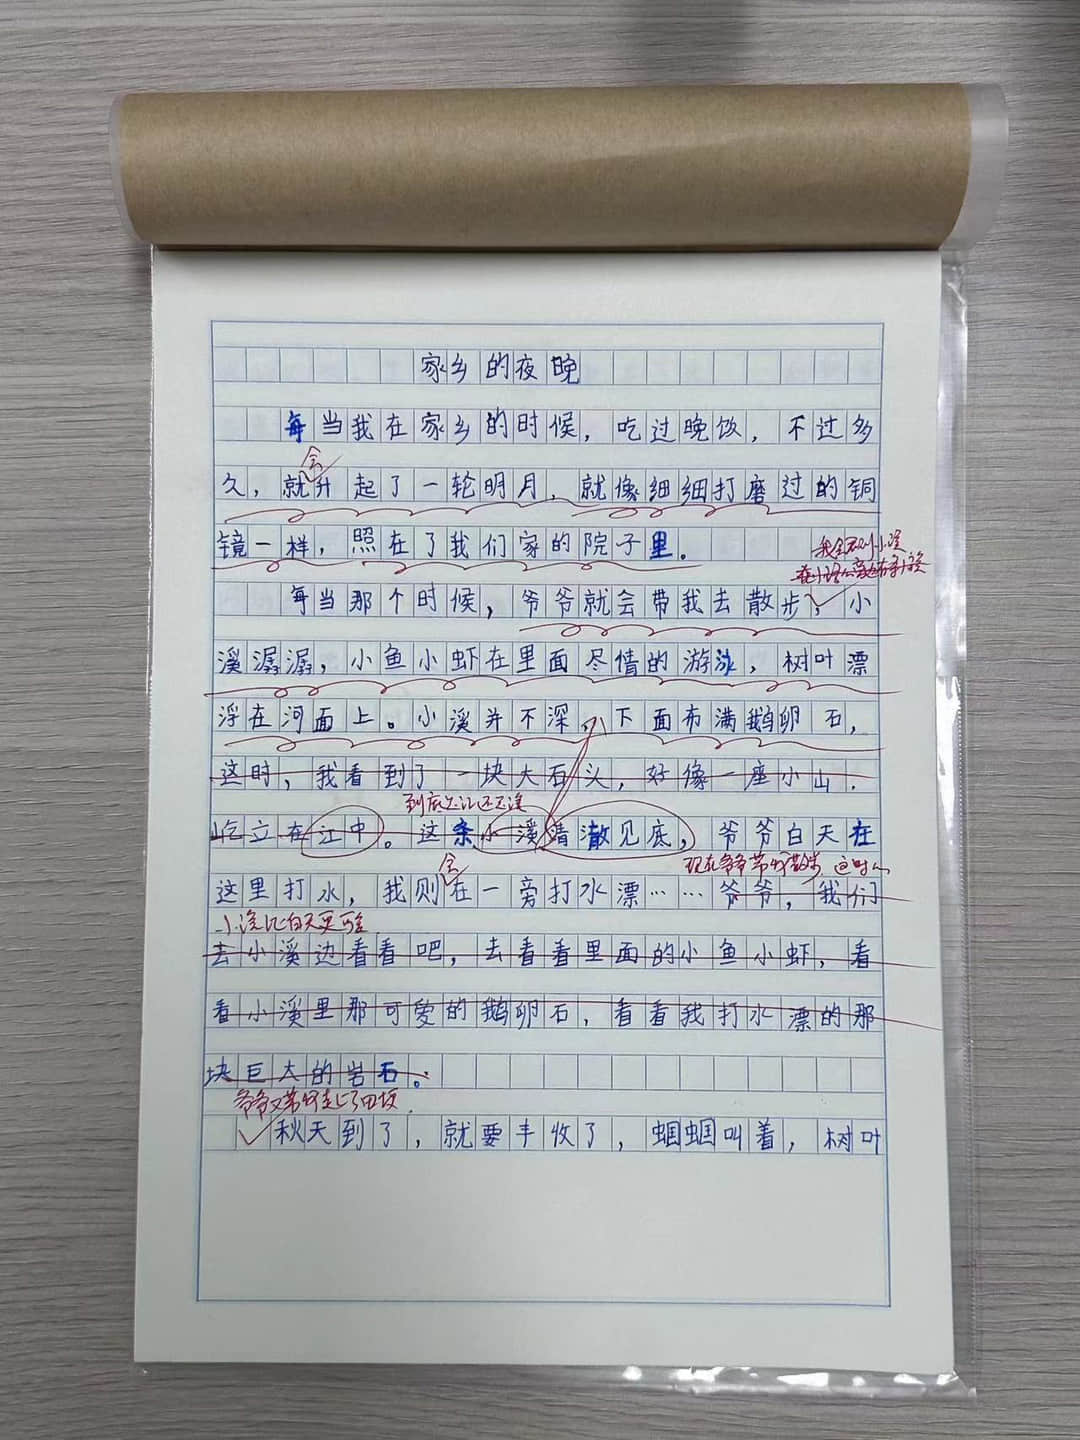 家乡的夜晚
每当我在家乡的时候，吃过晚饭，不过多
会
久，就升起了一轮明月，就像细细打磨过的铜
镜一样，照在了我们家的院子里。
每当那个时候，爷爷就会带我去散步，小
溪潺潺，小鱼小虾在里面尽情的游泳，树叶漂
浮在河面上。小溪并不深，下面布满鹅卵石，
这时，我看到了一块大石头，好像一座小山，
到底是江还是溪
屹立在江中。这条小溪清澈见底，爷爷白天在
会
现在爷爷带你散步 这时
这里打水，我则在一旁打水漂……爷爷，我们
小溪比白天更
去小溪边看看吧，去看看里面的小鱼小虾，看
看小溪里那可爱的鹅卵石，看看我打水漂的那
块巨大的岩石。
爷爷又带你走上了田坡
秋天到了，就要丰收了，蝈蝈叫着，树叶